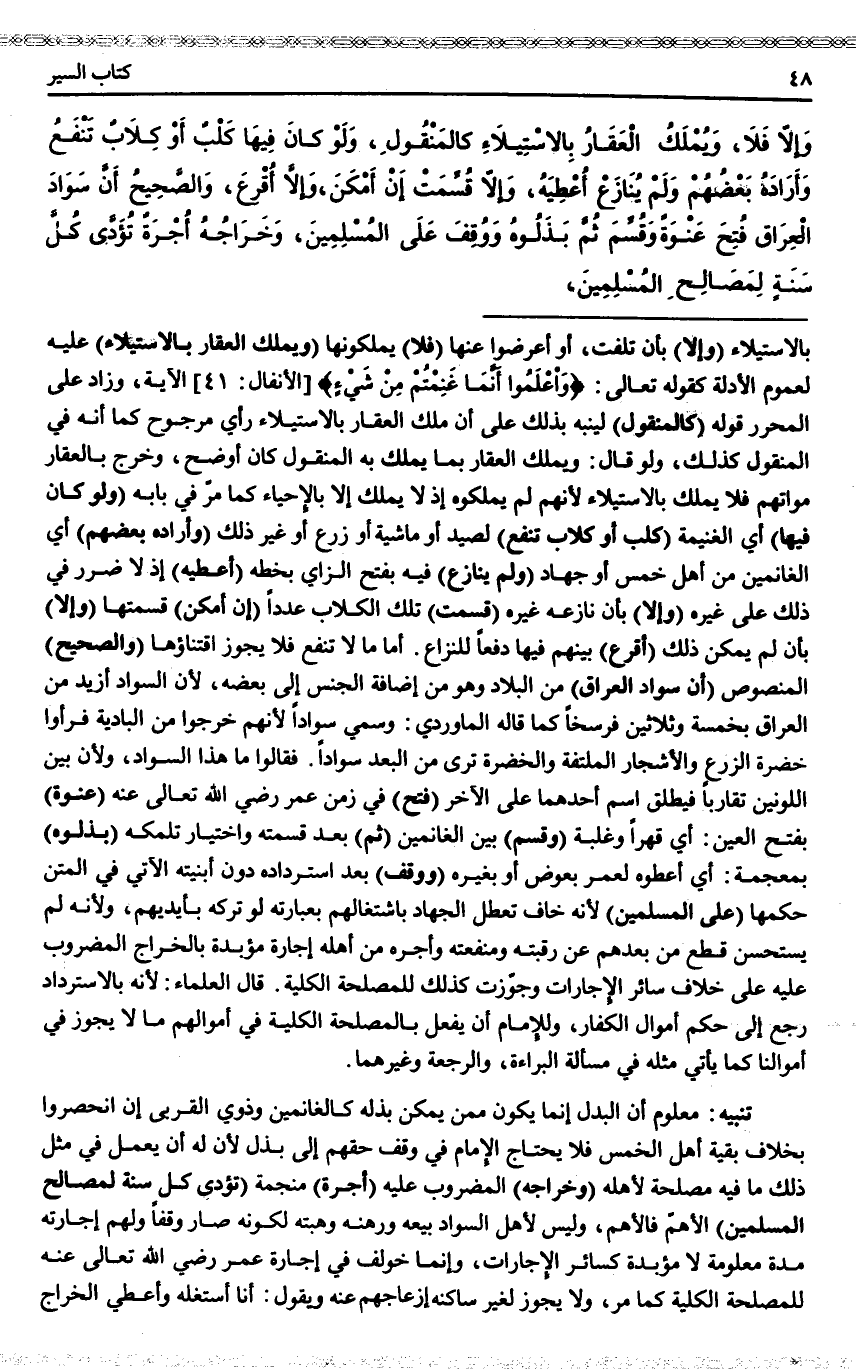 ٤٨ كتاب السير
وَإِلاَّ فَلَا، وَيُمْلَكُ الْعَقَارُ بِالاسْتِيلَاءِ كالمَنْقُولِ، وَلَوْ كانَ فِيهَا كَلْبٌ أَوْ كِلَابٌ تَنْفَعُ
وَأَرَادَهُ بَعْضُهُمْ وَلَمْ يُنَازَعْ أُعْطِيَهُ، وَإِلاَّ قُسِّمَتْ إِنْ أَمْكَنَ، وَإِلاَّ أُقْرِعَ، وَالصَّحِيحُ أَنَّ سَوَادَ
الْعِرَاقِ فُتِحَ عَنْوَةً وَقُسِّمَ ثُمَّ بَذَلُوهُ وَوُقِفَ عَلَى المُسْلِمِينَ، وَخَرَاجُهُ أُجْرَةٌ تُؤَدَّى كُلَّ
سَنَةٍ لِمَصَالِحِ المُسْلِمِينَ،
بالاستيلاء (وإلا) بأن تلفت، أو أعرضوا عنها (فلا) يملكونها (ويملك العقار بالاستيلاء) عليه
لعموم الأدلة كقوله تعالى: ﴿وَأَعْلَمُوا أَنَّمَا غَنِمْتُمْ مِنْ شَيْءٍ﴾ [الأنفال: ٤١] الآية، وزاد على
المحرر قوله (كالمنقول) لينبه بذلك على أن ملك العقار بالاستيلاء رأي مرجوح كما أنه في
المنقول كذلك، ولو قال: ويملك العقار بما يملك به المنقول كان أوضح، وخرج بالعقار
مواتهم فلا يملك بالاستيلاء لأنهم لم يملكوه إذ لا يملك إلا بالإحياء كما مرّ في بابه (ولو كان
فيها) أي الغنيمة (كلب أو كلاب تنفع) لصيد أو ماشية أو زرع أو غير ذلك (وأراده بعضهم) أي
الغانمين من أهل خمس أو جهاد (ولم ينازع) فيه بفتح الزاي بخطه (أعطيه) إذ لا ضرر في
ذلك على غيره (وإلا) بأن نازعه غيره (قسمت) تلك الكلاب عدداً (إن أمكن) قسمتها (وإلا)
بأن لم يمكن ذلك (أقرع) بينهم فيها دفعاً للنزاع. أما ما لا تنفع فلا يجوز اقتناؤها (والصحيح)
المنصوص (أن سواد العراق) من البلاد وهو من إضافة الجنس إلى بعضه، لأن السواد أزيد من
العراق بخمسة وثلاثين فرسخاً كما قاله الماوردي: وسمي سواداً لأنهم خرجوا من البادية فرأوا
خضرة الزرع والأشجار الملتفة والخضرة ترى من البعد سواداً. فقالوا ما هذا السواد، ولأن بين
اللونين تقارباً فيطلق اسم أحدهما على الآخر (فتح) في زمن عمر رضي الله تعالى عنه (عنوة)
بفتح العين: أي قهراً وغلبة (وقسم) بين الغانمين (ثم) بعد قسمته واختيار تلمكه (بذلوه)
بمعجمة: أي أعطوه لعمر بعوض أو بغيره (ووقف) بعد استرداده دون أبنيته الآتي في المتن
حكمها (على المسلمين) لأنه خاف تعطل الجهاد باشتغالهم بعبارته لو تركه بأيديهم، ولأنه لم
يستحسن قطع من بعدهم عن رقبته ومنفعته وأجره من أهله إجارة مؤبدة بالخراج المضروب
عليه على خلاف سائر الإجارات وجوّزت كذلك للمصلحة الكلية. قال العلماء: لأنه بالاسترداد
رجع إلى حكم أموال الكفار، وللإمام أن يفعل بالمصلحة الكلية في أموالهم ما لا يجوز في
أموالنا كما يأتي مثله في مسألة البراءة، والرجعة وغيرهما.
تنبيه: معلوم أن البدل إنما يكون ممن يمكن بذله كالغانمين وذوي القربى إن انحصروا
بخلاف بقية أهل الخمس فلا يحتاج الإمام في وقف حقهم إلى بذل لأن له أن يعمل في مثل
ذلك ما فيه مصلحة لأهله (وخراجه) المضروب عليه (أجرة) منجمة (تؤدي كل سنة لمصالح
المسلمين) الأهمّ فالأهم، وليس لأهل السواد بيعه ورهنه وهبته لكونه صار وقفاً ولهم إجارته
مدة معلومة لا مؤبدة كسائر الإجارات، وإنما خولف في إجارة عمر رضي الله تعالى عنه
للمصلحة الكلية كما مر، ولا يجوز لغير ساكنه إزعاجهم عنه ويقول: أنا أستغله وأعطي الخراج